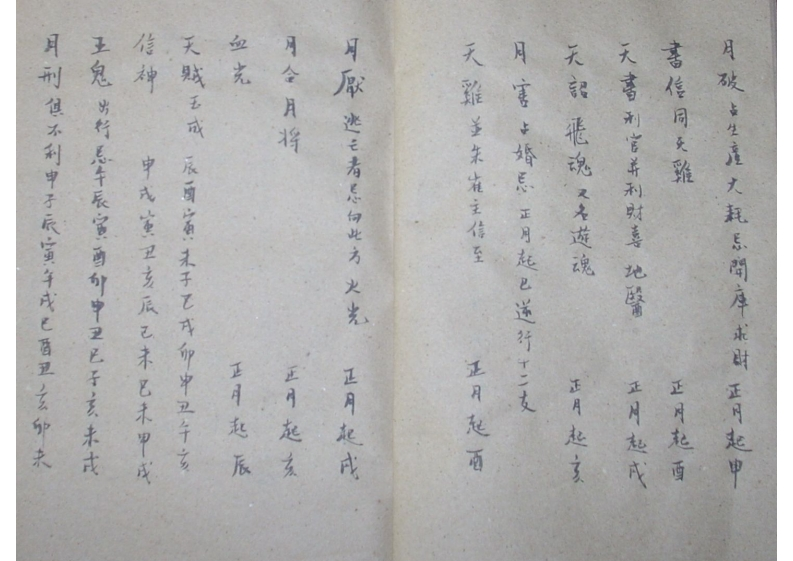 月破占生產大耗忌開庫求財 正月起申
書信同天雞 正月起酉
天書利官并利財喜 地醫 正月起戌
天詔 飛魂 又名遊魂 正月起亥
月害占婚忌 正月起巳逆行十二支
天雞並朱雀主信至 正月起酉
月厭逃亡者忌向此方 火光 正月起戌
月合月將 正月起亥
血光 正月起辰
天賊玉成 辰酉寅未子巳戌卯申丑午亥
信神 申戌寅丑亥辰巳未巳未申戌
王鬼出行忌午辰寅酉卯申丑巳子亥未戌
月刑俱不利申子辰寅午戌巳酉丑亥卯未